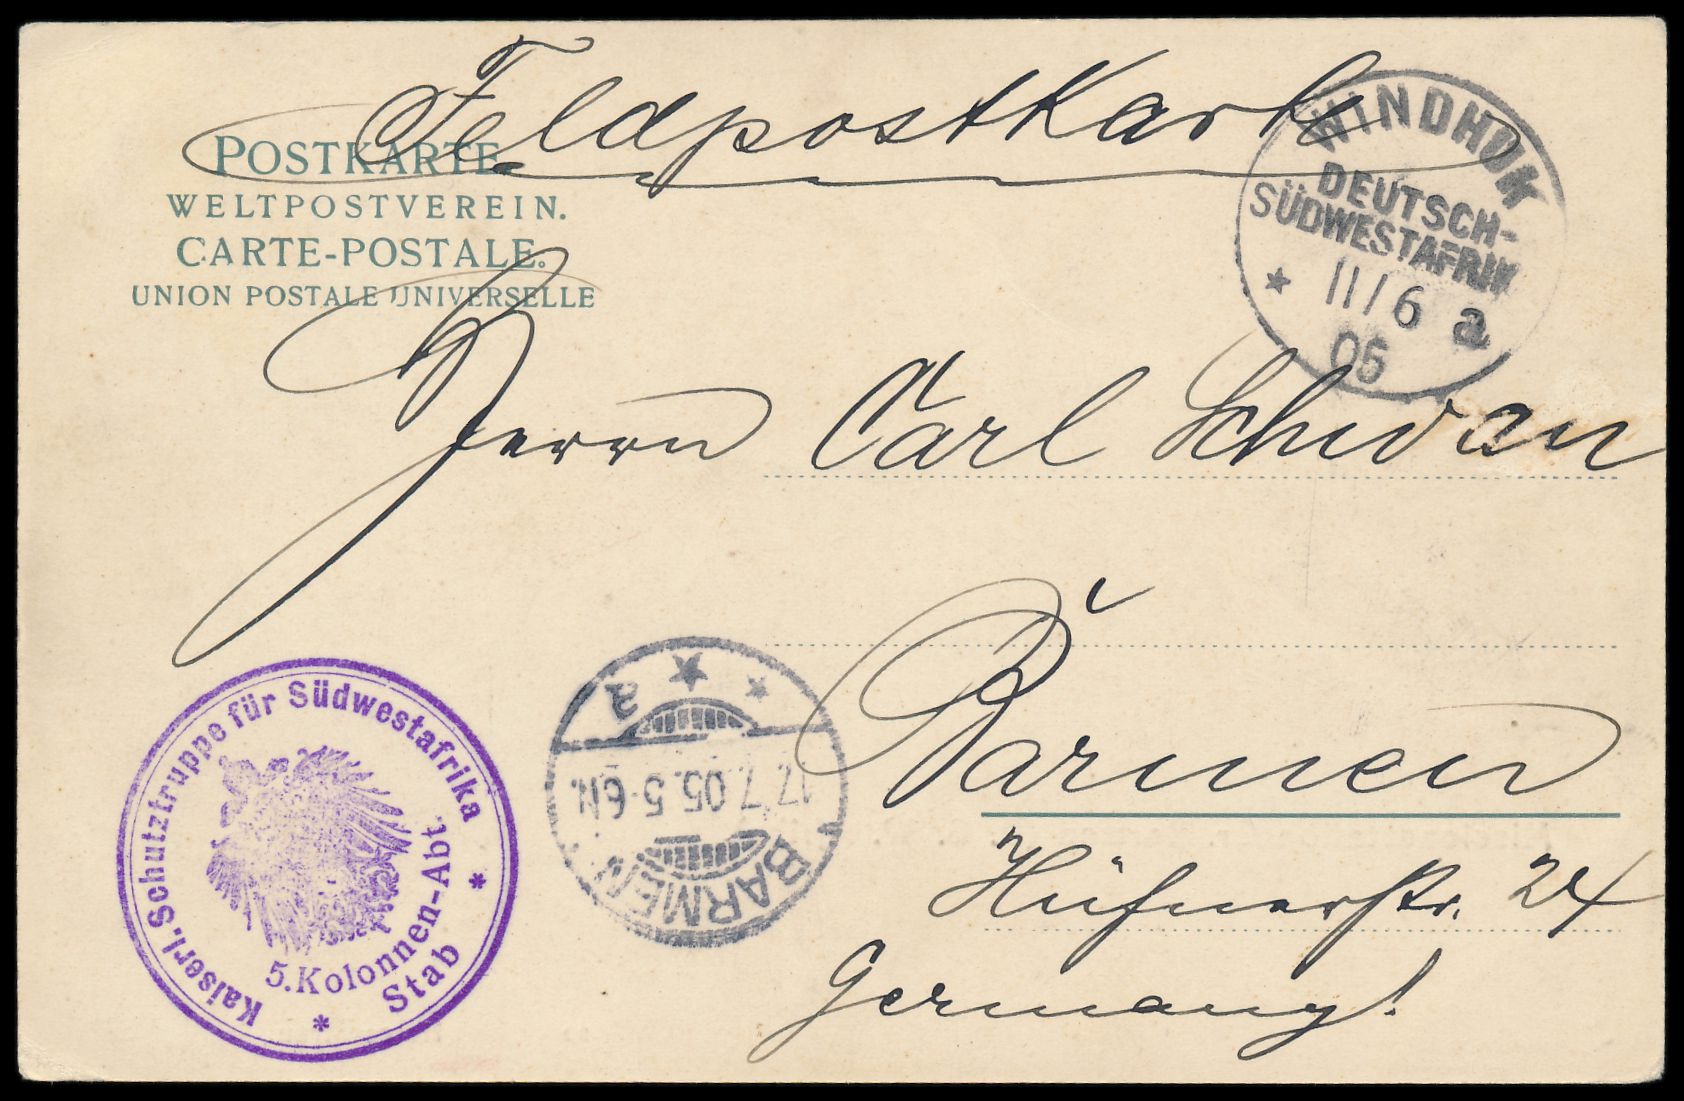 Feldpostkarte
POSTKARTE
WELTPOSTVEREIN.
CARTE-POSTALE.
UNION POSTALE UNIVERSELLE
WINDHUK
DEUTSCH-
SÜDWESTAFRIKA
11/6 a
05
Herrn Carl Schwan
Barmen
Hüfnerstr. 24
Germany!
Kaiserl. Schutztruppe für Südwestafrika
5. Kolonnen-Abt.
Stab
BARMEN
17.7.05.5-6N.
a